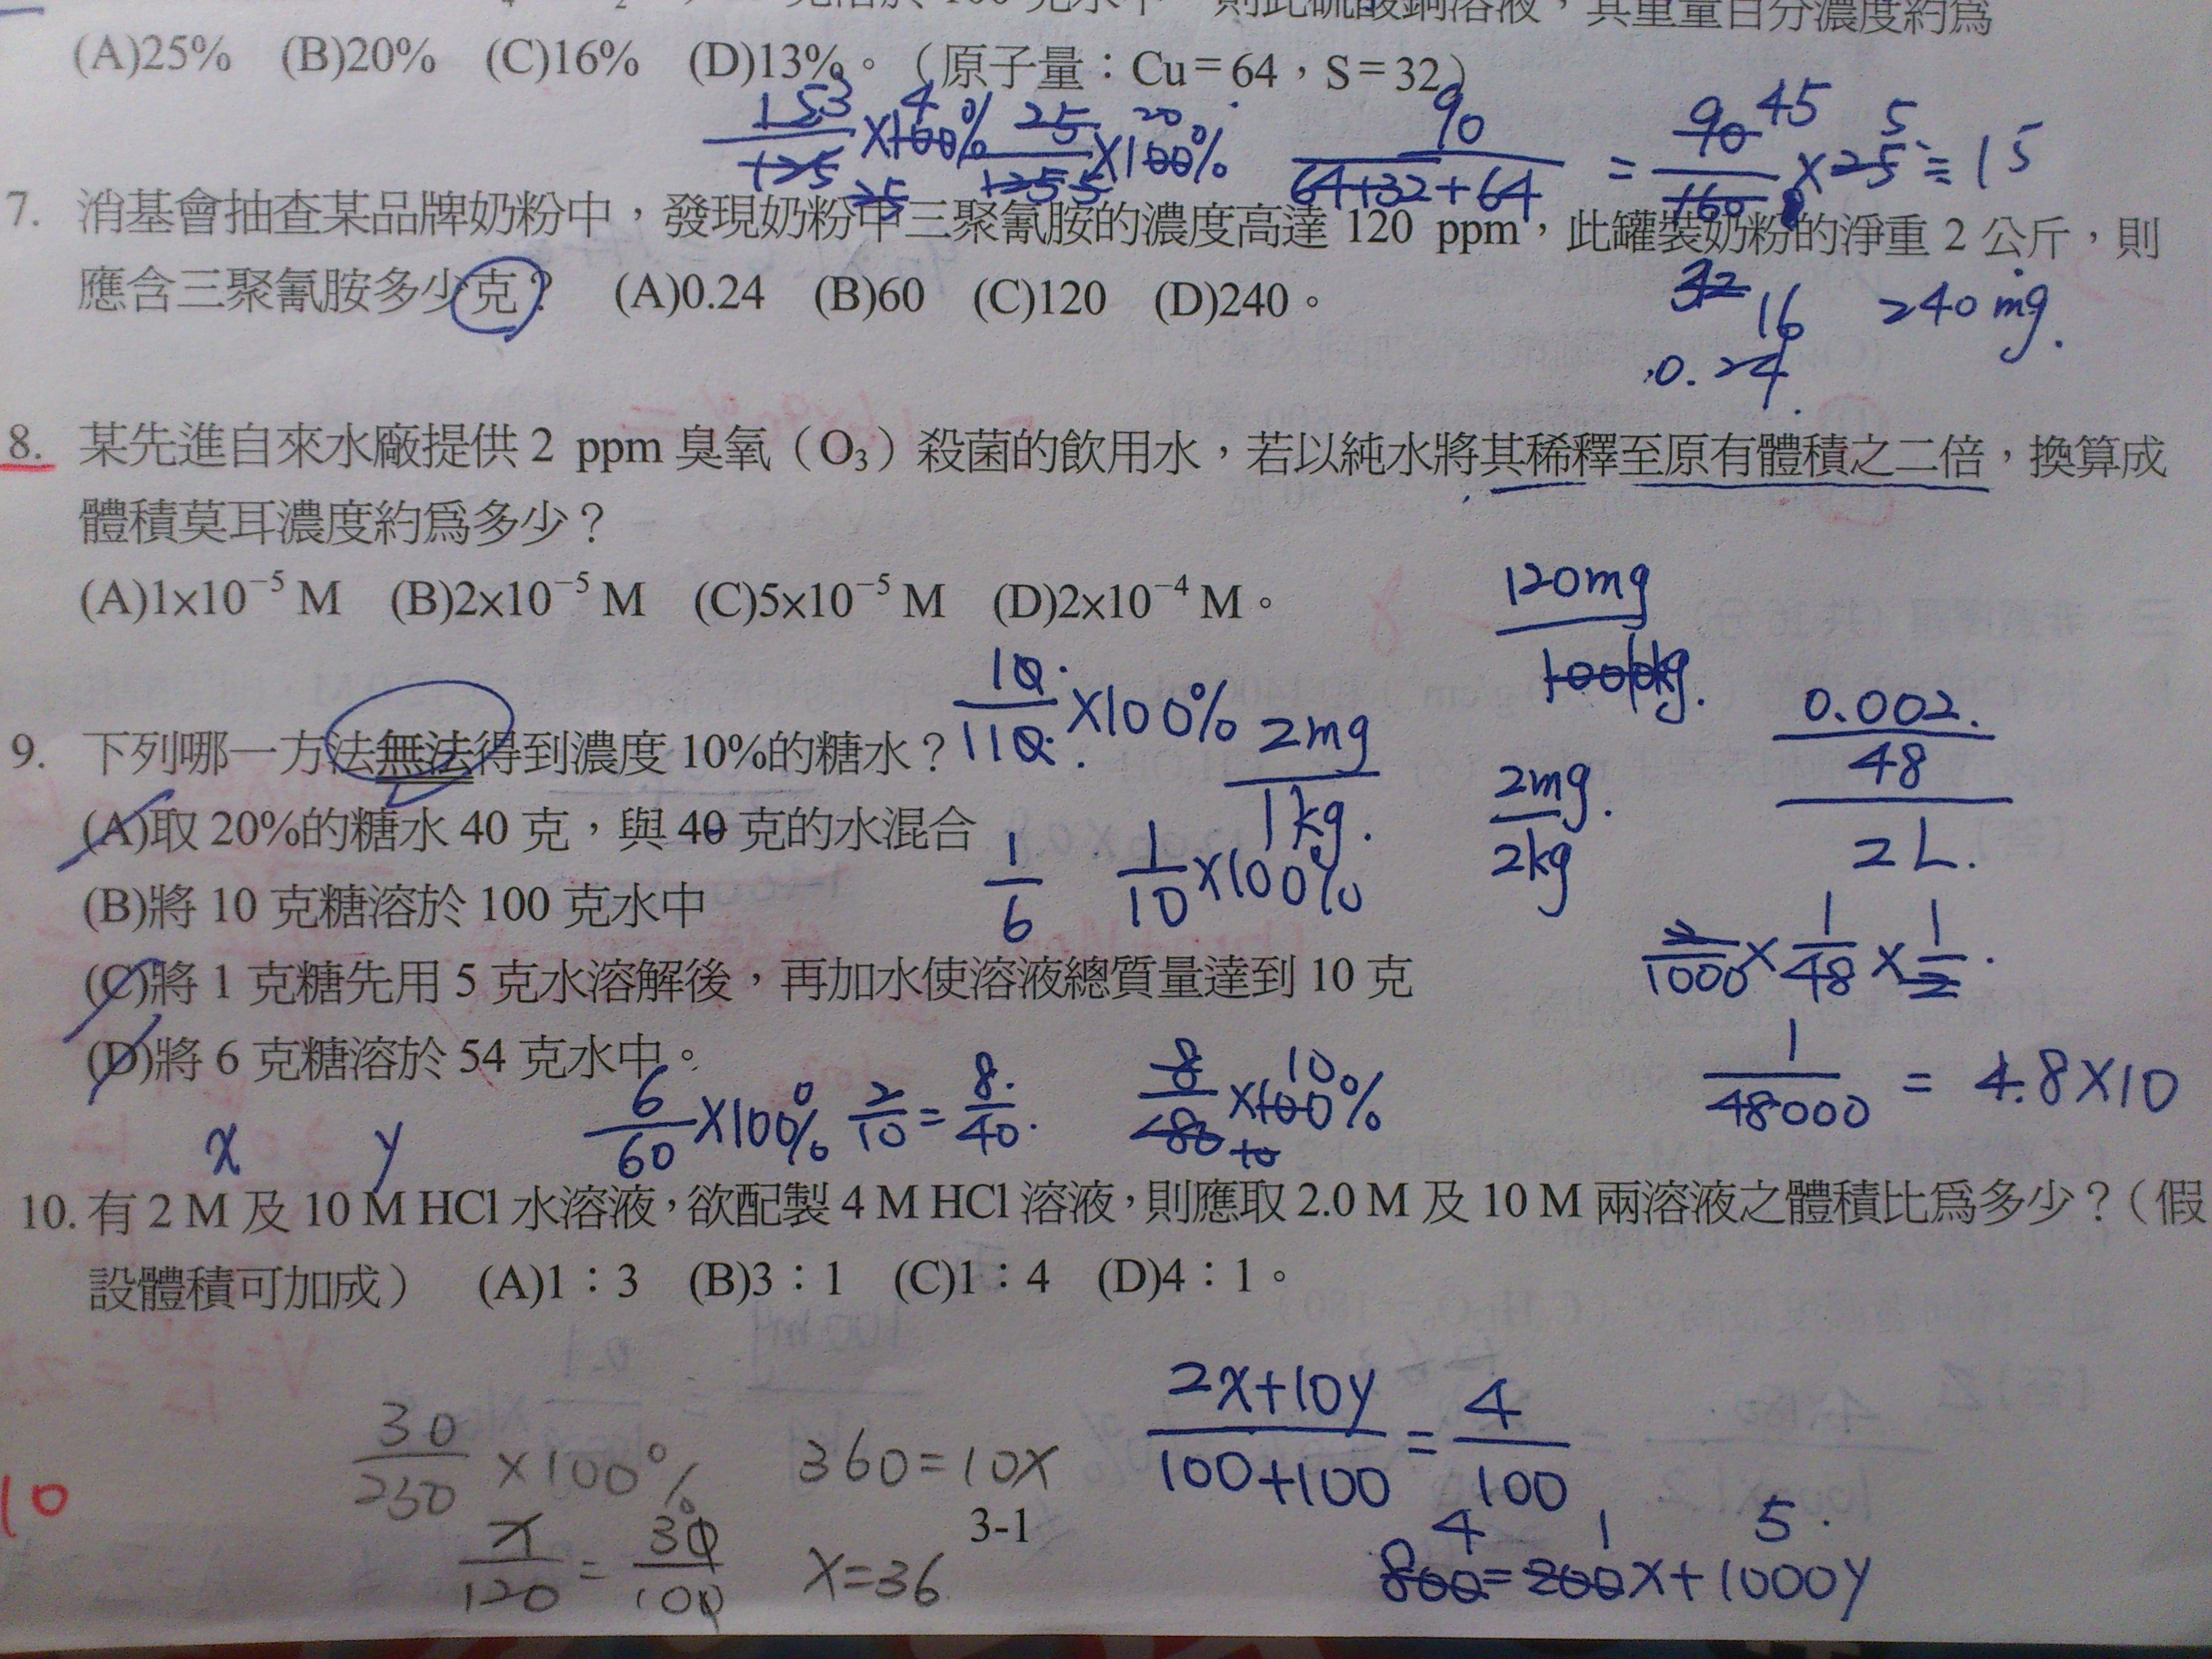 克溶於 100 克水中 則此硫酸銅溶液，其重量百分濃度約為
(A)25% (B)20% (C)16% (D)13%。（原子量：Cu=64，S=32）
153/125 ×100% 4 25
25/125 ×100% 20 5
90/64+32+64 = 90/160 ×25 = 15
45 5
7. 消基會抽查某品牌奶粉中，發現奶粉中三聚氰胺的濃度高達 120 ppm，此罐裝奶粉的淨重 2 公斤，則
應含三聚氰胺多少克？ (A)0.24 (B)60 (C)120 (D)240。
32
16 240mg.
0.24
8. 某先進自來水廠提供 2 ppm 臭氧（O₃）殺菌的飲用水，若以純水將其稀釋至原有體積之二倍，換算成
體積莫耳濃度約爲多少？
(A)1×10⁻⁵ M (B)2×10⁻⁵ M (C)5×10⁻⁵ M (D)2×10⁻⁴ M。
120mg
10/110 ×100%
2mg/1kg.
2mg/2kg
0.002/48
2L.
9. 下列哪一方法無法得到濃度 10%的糖水？
(A)取 20%的糖水 40 克，與 40 克的水混合
1/6 1/10 ×100%
(B)將 10 克糖溶於 100 克水中
2/1000 × 1/48 × 1/2
(C)將 1 克糖先用 5 克水溶解後，再加水使溶液總質量達到 10 克
(D)將 6 克糖溶於 54 克水中。
1/48000 = 4.8×10
6/60 ×100% 2/10 = 8/40 8/480 ×100% 10
x y
10. 有 2 M 及 10 M HCl 水溶液，欲配製 4 M HCl 溶液，則應取 2.0 M 及 10 M 兩溶液之體積比爲多少？（假
設體積可加成） (A)1：3 (B)3：1 (C)1：4 (D)4：1。
2x+10y/100+100 = 4/100
30/250 ×100% 360=10x
10
3-1
4 1 5
x/120 = 30/100 x=36
800=200x+1000y